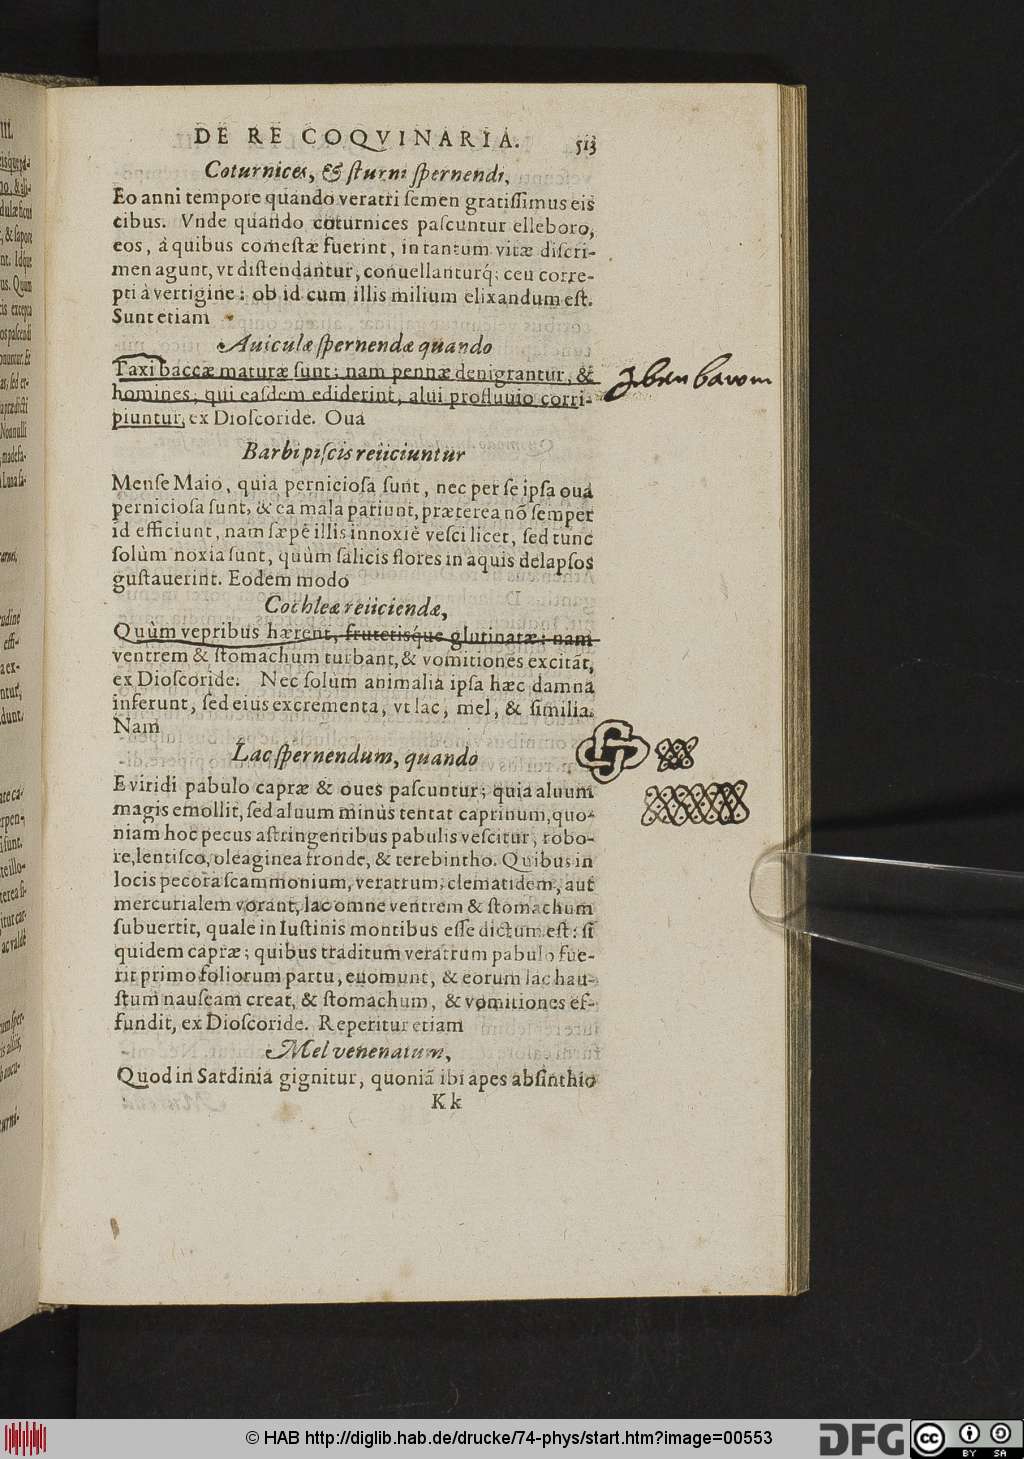 DE RE COQVINARIA. 513
Coturnices, & sturni spernendi,
Eo anni tempore quando veratri semen gratissimus eis
cibus. Vnde quando coturnices pascuntur elleboro,
eos, à quibus comestæ fuerint, in tantum vitæ discri-
men agunt, vt distendantur, conuellanturq́; ceu corre-
pti à vertigine: ob id cum illis milium elixandum est.
Sunt etiam
Auiculæ spernendæ quando
Taxi baccæ maturæ sunt: nam pennæ denigrantur, &
homines, qui easdem ediderint, alui profluuio corri-
piuntur, ex Dioscoride. Oua
Barbi piscis reiiciuntur
Mense Maio, quia perniciosa sunt, nec per se ipsa oua
perniciosa sunt, & ea mala pariunt, præterea nõ semper
id efficiunt, nam sæpè illis innoxiè vesci licet, sed tunc
solùm noxia sunt, quùm salicis flores in aquis delapsos
gustauerint. Eodem modo
Cochleæ reiiciendæ,
Quùm vepribus hærent, frutetisq́ue glutinatæ: nam
ventrem & stomachum turbant, & vomitiones excitãt,
ex Dioscoride. Nec solùm animalia ipsa hæc damna
inferunt, sed eius excrementa, vt lac, mel, & similia.
Nam
Lac spernendum, quando
E viridi pabulo capræ & oues pascuntur; quia aluum
magis emollit, sed aluum minùs tentat caprinum, quo-
niam hoc pecus astringentibus pabulis vescitur, robo-
re, lentisco, oleaginea fronde, & terebintho. Quibus in
locis pecora scammonium, veratrum, clematidem, aut
mercurialem vorant, lac omne ventrem & stomachum
subuertit, quale in Iustinis montibus esse dictum est: si
quidem capræ; quibus traditum veratrum pabulo fue-
rit primo foliorum partu, euomunt, & eorum lac hau-
stum nauseam creat, & stomachum, & vomitiones ef-
fundit, ex Dioscoride. Reperitur etiam
Mel venenatum,
Quod in Sardinia gignitur, quoniã ibi apes absinthio
Kk
© HAB http://diglib.hab.de/drucke/74-phys/start.htm?image=00553
DFG
cc
BY SA